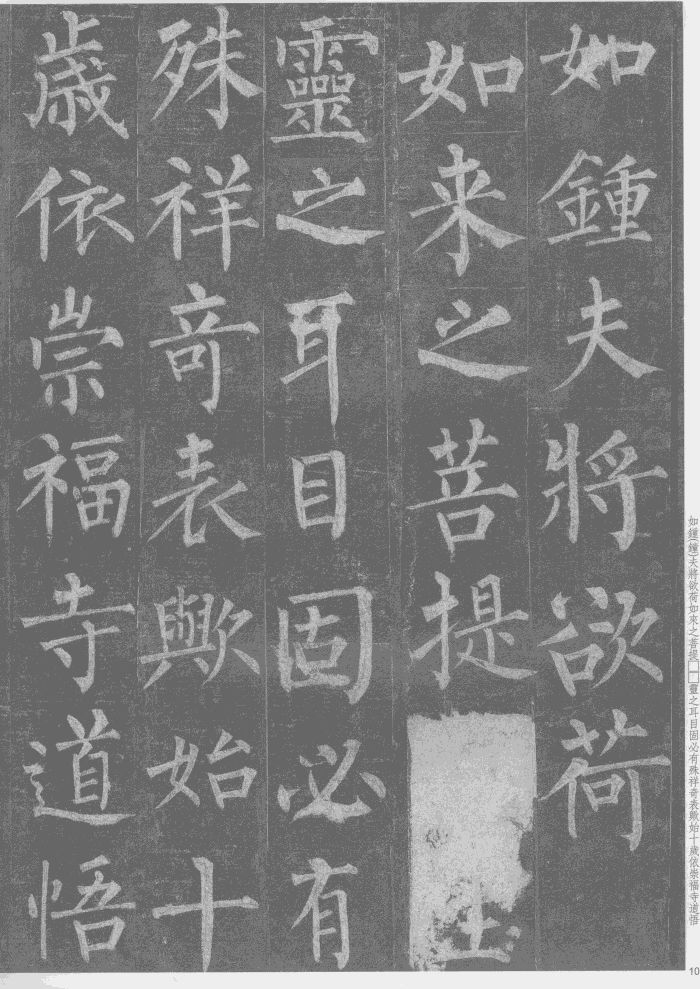 如鍾夫將欲荷
如来之菩提
靈之耳目固必有
殊祥奇表歟始十
歳依崇福寺道悟
如鍾(鐘)夫將欲荷如來之菩提□□靈之耳目固必有殊祥奇表歟始十歲依崇福寺道悟
10